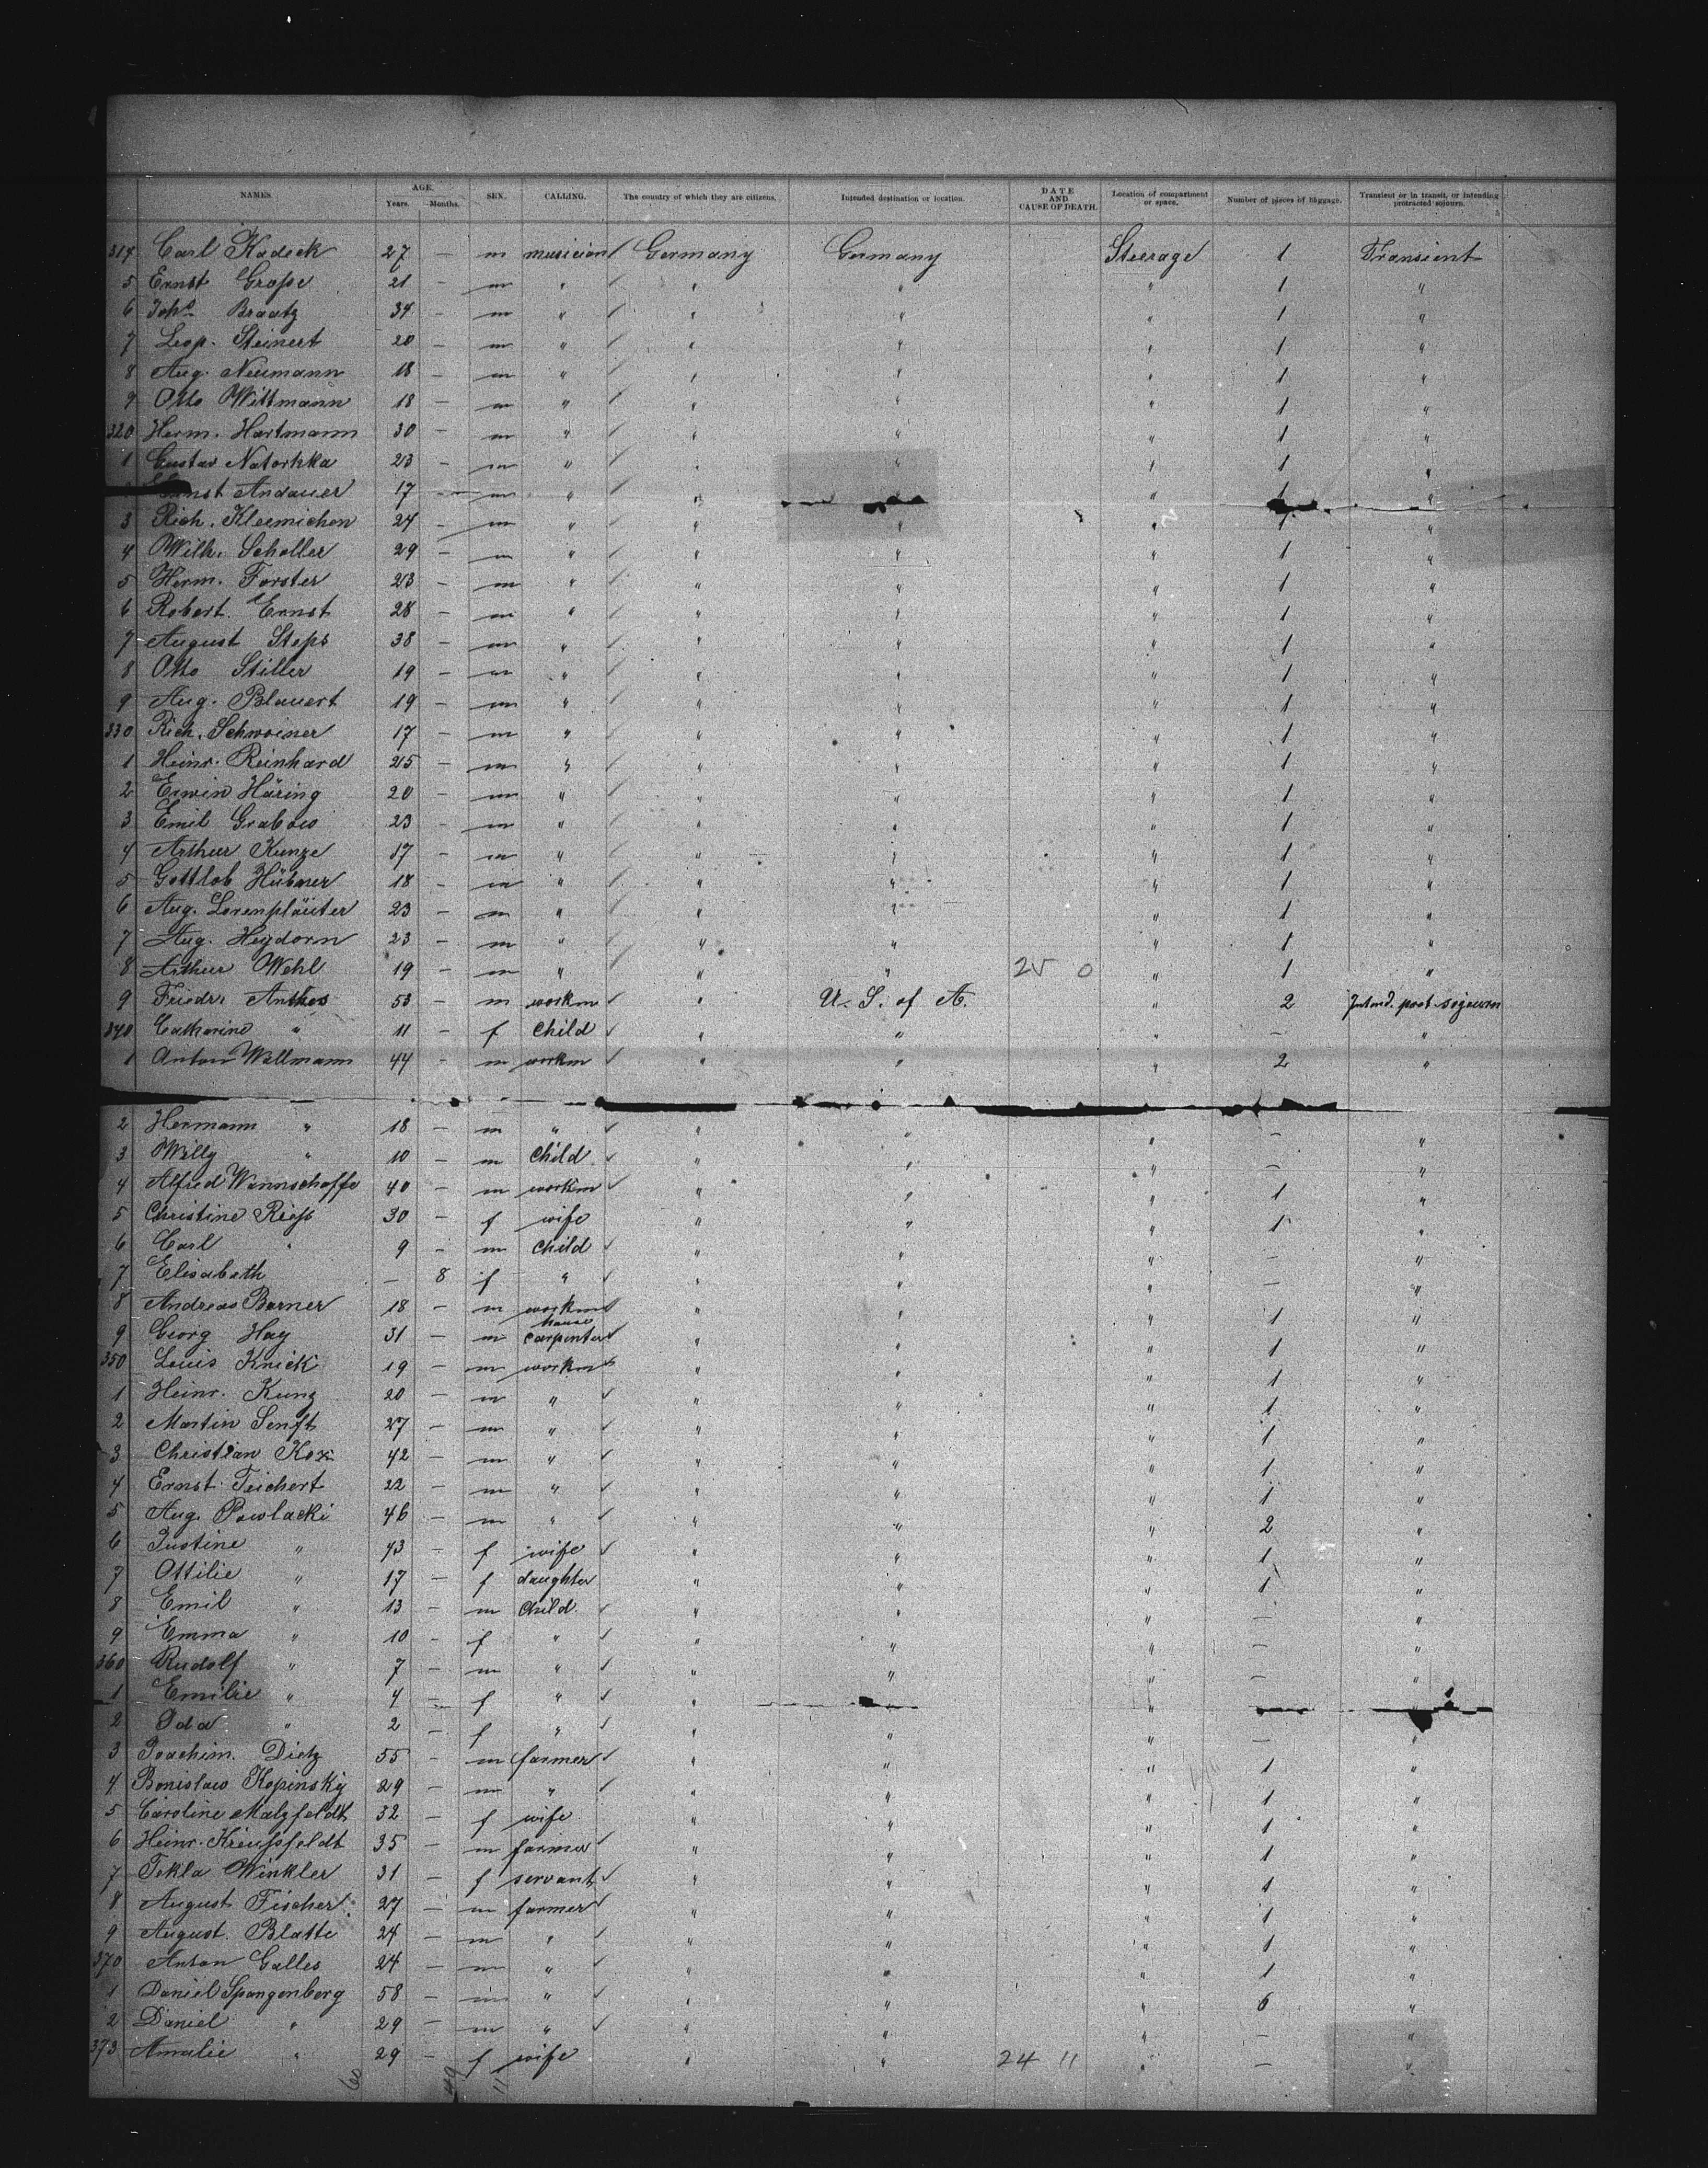 NAMES. AGE. Years. Months. SEX. CALLING. The country of which they are citizens. Intended destination or location. DATE AND CAUSE OF DEATH. Location of compartment or space. Number of pieces of baggage. Transient or in transit, or intending protracted sojourn.
314 Carl Kadeck 27 — m musician Germany Germany Steerage 1 Transient
5 Ernst 21 — m " " " " 1 "
6 Joh. Braatz 34 — m " " " " 1 "
7 Leop. Steinert 20 — m " " " " 1 "
8 Aug. Neumann 18 — m " " " " 1 "
9 Otto Wittmann 18 — m " " " " 1 "
320 Herm. Hartmann 30 — m " " " " 1 "
1 Gustav Natorkka 23 — m " " " " 1 "
Ernst Andauer 17 — m " " " " 1 "
3 Rich. Kleemichen 24 — m " " " " 1 "
4 Wilh. Scholler 29 — m " " " " 1 "
5 Herm. Forster 23 — m " " " " 1 "
6 Robert Ernst 28 — m " " " " 1 "
7 August Steps 38 — m " " " " 1 "
8 Otto Stiller 19 — m " " " " 1 "
9 Aug. Blauert 19 — m " " " " 1 "
330 Rich. Schwoiner 17 — m " " " " 1 "
1 Heinr. Reinhard 25 — m " " " " 1 "
2 Erwin Häring 20 — m " " " " 1 "
3 Emil Grabow 23 — m " " " " 1 "
4 Arthur Kunze 17 — m " " " " 1 "
5 Gottlob Hübner 18 — m " " " " 1 "
6 Aug. 23 — m " " " " 1 "
7 Aug. Heydorn 23 — m " " " " 1 "
8 Arthur Wehl 19 — m " " " 25 0 " 1 "
9 Friedr. Anthes 53 — m workm " U. S. of A. " 2 Intend. prot. sojourn
340 Catharine " 11 — f Child " " " — "
1 Anton Wellmann 44 — m workm " " " 2 "
2 Hermann " 18 — m " " " " — "
3 Willy " 10 — m Child " " " — "
4 Alfred Wannschaffe 40 — m workm " " " 1 "
5 Christine Riess 30 — f wife " " " 1 "
6 Carl " 9 — m Child " " " — "
7 Elisabeth — 8 f " " " " — "
8 Andreas Barner 18 — m workm " " " 1 "
9 Georg Hay 31 — m house carpenter " " " 1 "
350 Louis Knick 19 — m workm " " " 1 "
1 Heinr. Kunz 20 — m " " " " 1 "
2 Martin Senft 27 — m " " " " 1 "
3 Christian 42 — m " " " " 1 "
4 Ernst Teichert 22 — m " " " " 1 "
5 Aug. Powlacki 46 — m " " " " 2 "
6 Justine " 43 — f wife " " " 1 "
7 Ottilie " 17 — f daughter " " " 1 "
8 Emil " 13 — m Child " " " — "
9 Emma " 10 — f " " " " — "
360 Rudolf " 7 — m " " " " — "
1 Emilie " 4 — f " " " " "
2 Oda " 2 — f " " " " — "
3 Joachim Dietz 55 — m farmer " " " 1 "
4 Bonislaw Kopinsky 29 — m " " " " 1 "
5 Caroline Malzfeldt 32 — f wife " " " 1 "
6 Heinr. Kreussfeldt 35 — m farmer " " " 1 "
7 Tekla Winkler 31 — f servant " " " 1 "
8 August Fischer 27 — m farmer " " " 1 "
9 August Blatte 24 — m " " " " 1 "
370 Anton Galles 24 — m " " " " 1 "
1 Daniel Spangenberg 58 — m " " " " 6 "
2 Daniel " 29 — m " " " " — "
373 Amalie " 29 — f wife " " 24 11 " — "
60 49 11